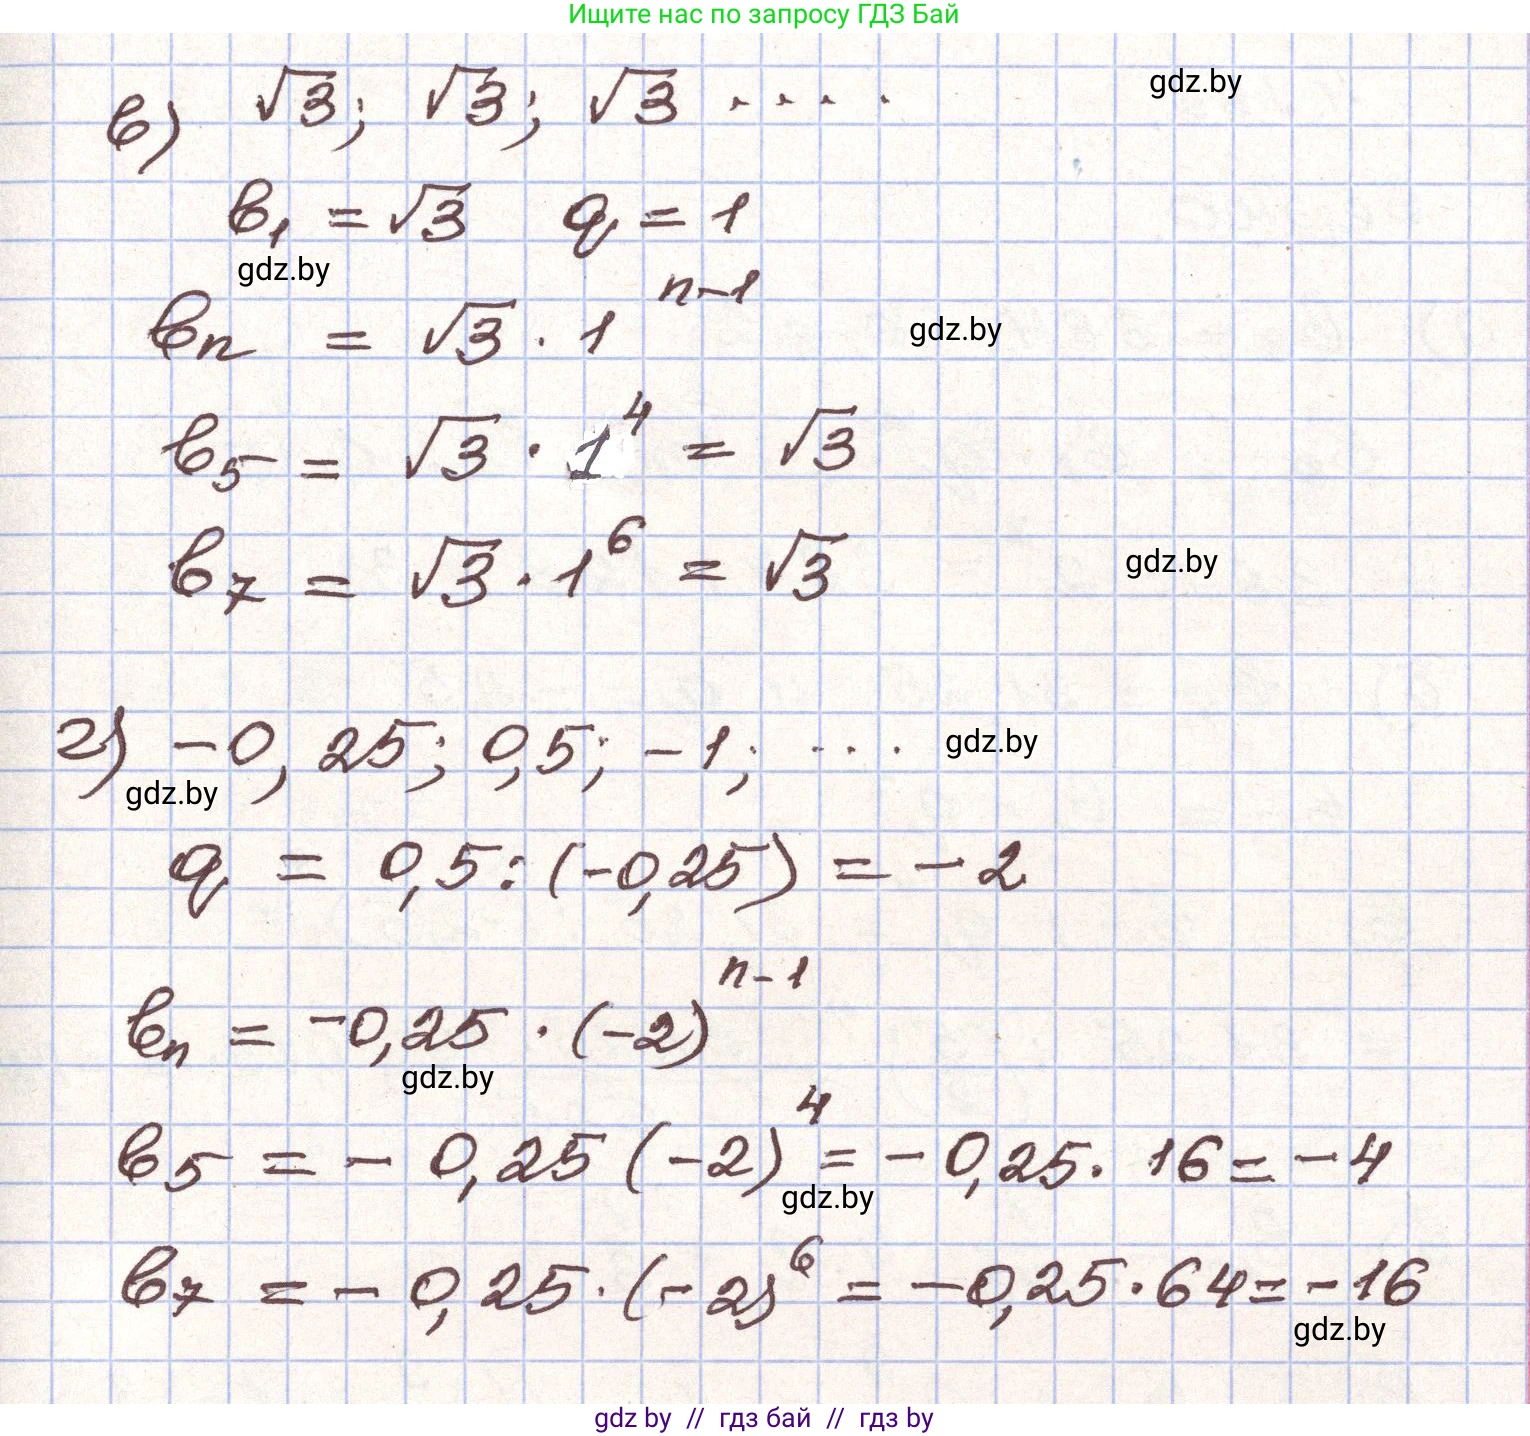 Ищите нас по запросу ГДЗ Бай
в) √3; √3; √3 ....
gdz.by
b₁ = √3 q = 1
gdz.by
bₙ = √3 · 1ⁿ⁻¹
gdz.by
b₅ = √3 · 1⁴ = √3
b₇ = √3 · 1⁶ = √3
gdz.by
г) -0,25; 0,5; -1; ...
gdz.by
gdz.by
q = 0,5 : (-0,25) = -2
bₙ = -0,25 · (-2)ⁿ⁻¹
gdz.by
b₅ = -0,25 (-2)⁴ = -0,25 · 16 = -4
gdz.by
b₇ = -0,25 · (-2)⁶ = -0,25 · 64 = -16
gdz.by
gdz by // гдз бай // гдз by